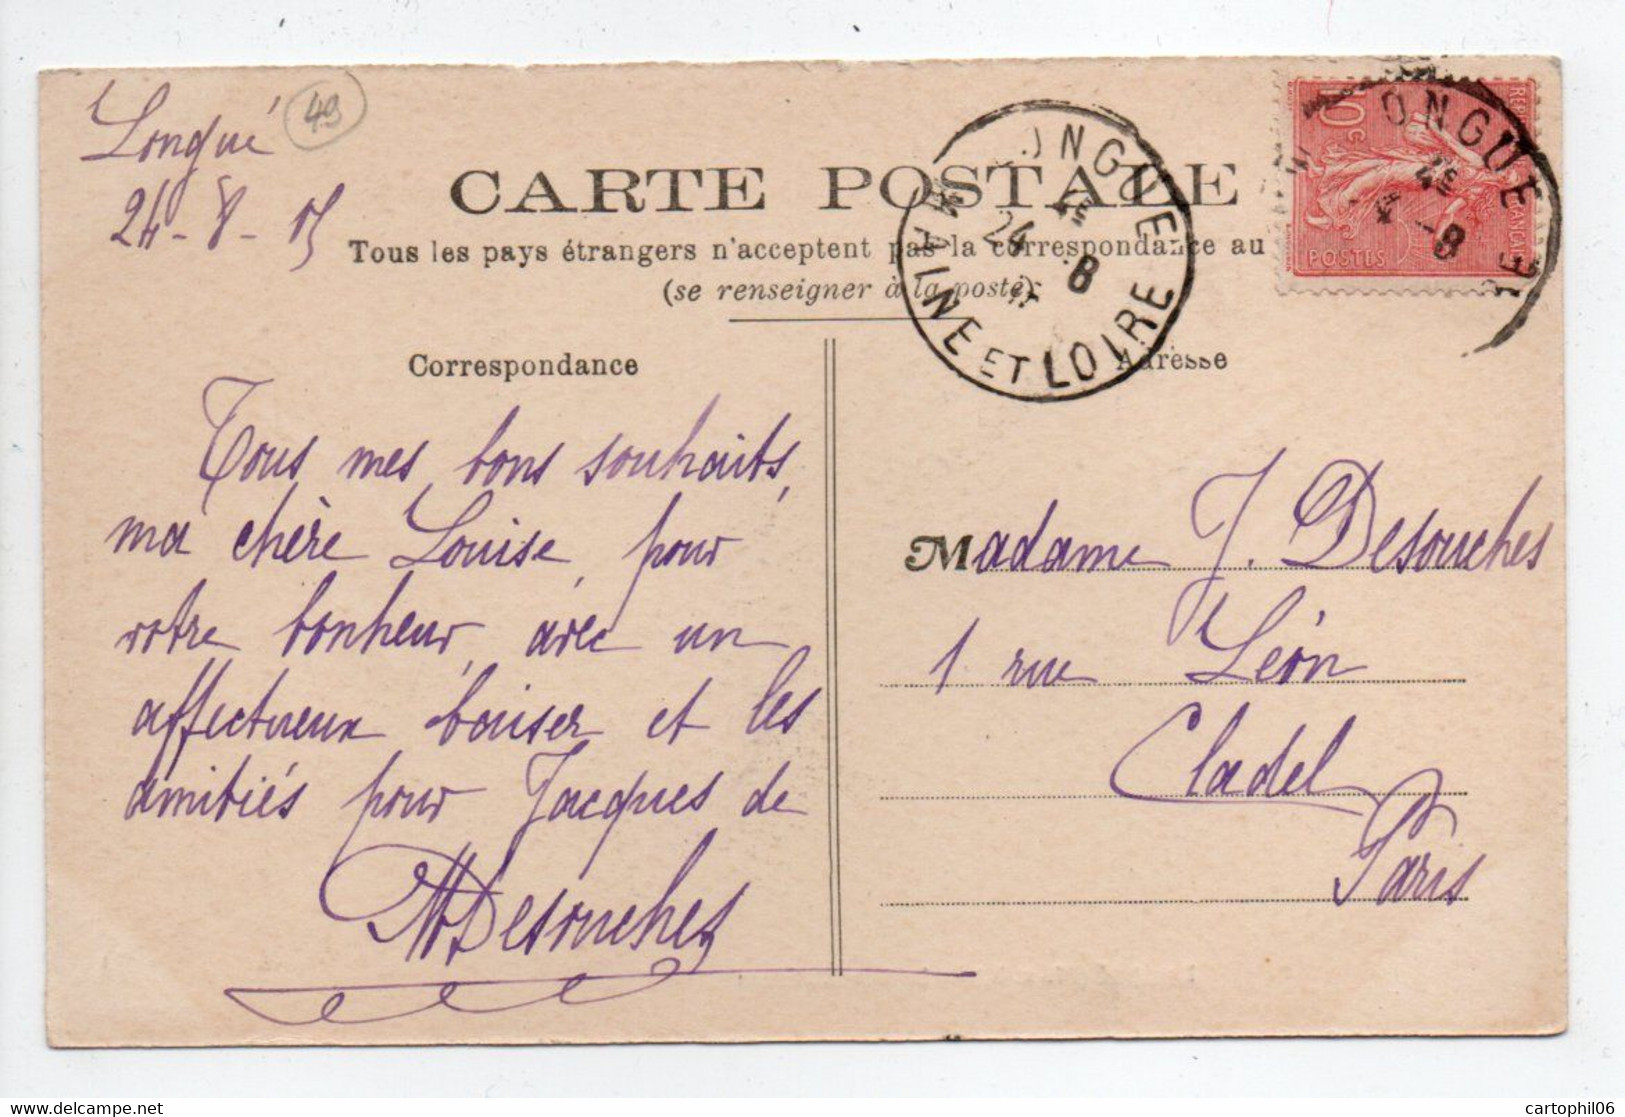 Longué
49
24-8-05
CARTE POSTALE
Tous les pays étrangers n'acceptent pas la correspondance au
(se renseigner à la poste)
Correspondance
Adresse
LONGUE
4E
24 8
MAINE ET LOIRE
10c
POSTES
ONGUE
4E
8
Tous mes bons souhaits,
ma chère Louise, pour
votre bonheur, avec un
affectueux baiser et les
amitiés pour Jacques de
Desouches
Madame J. Desouches
1 rue Léon
Cladel
Paris
cartophil06